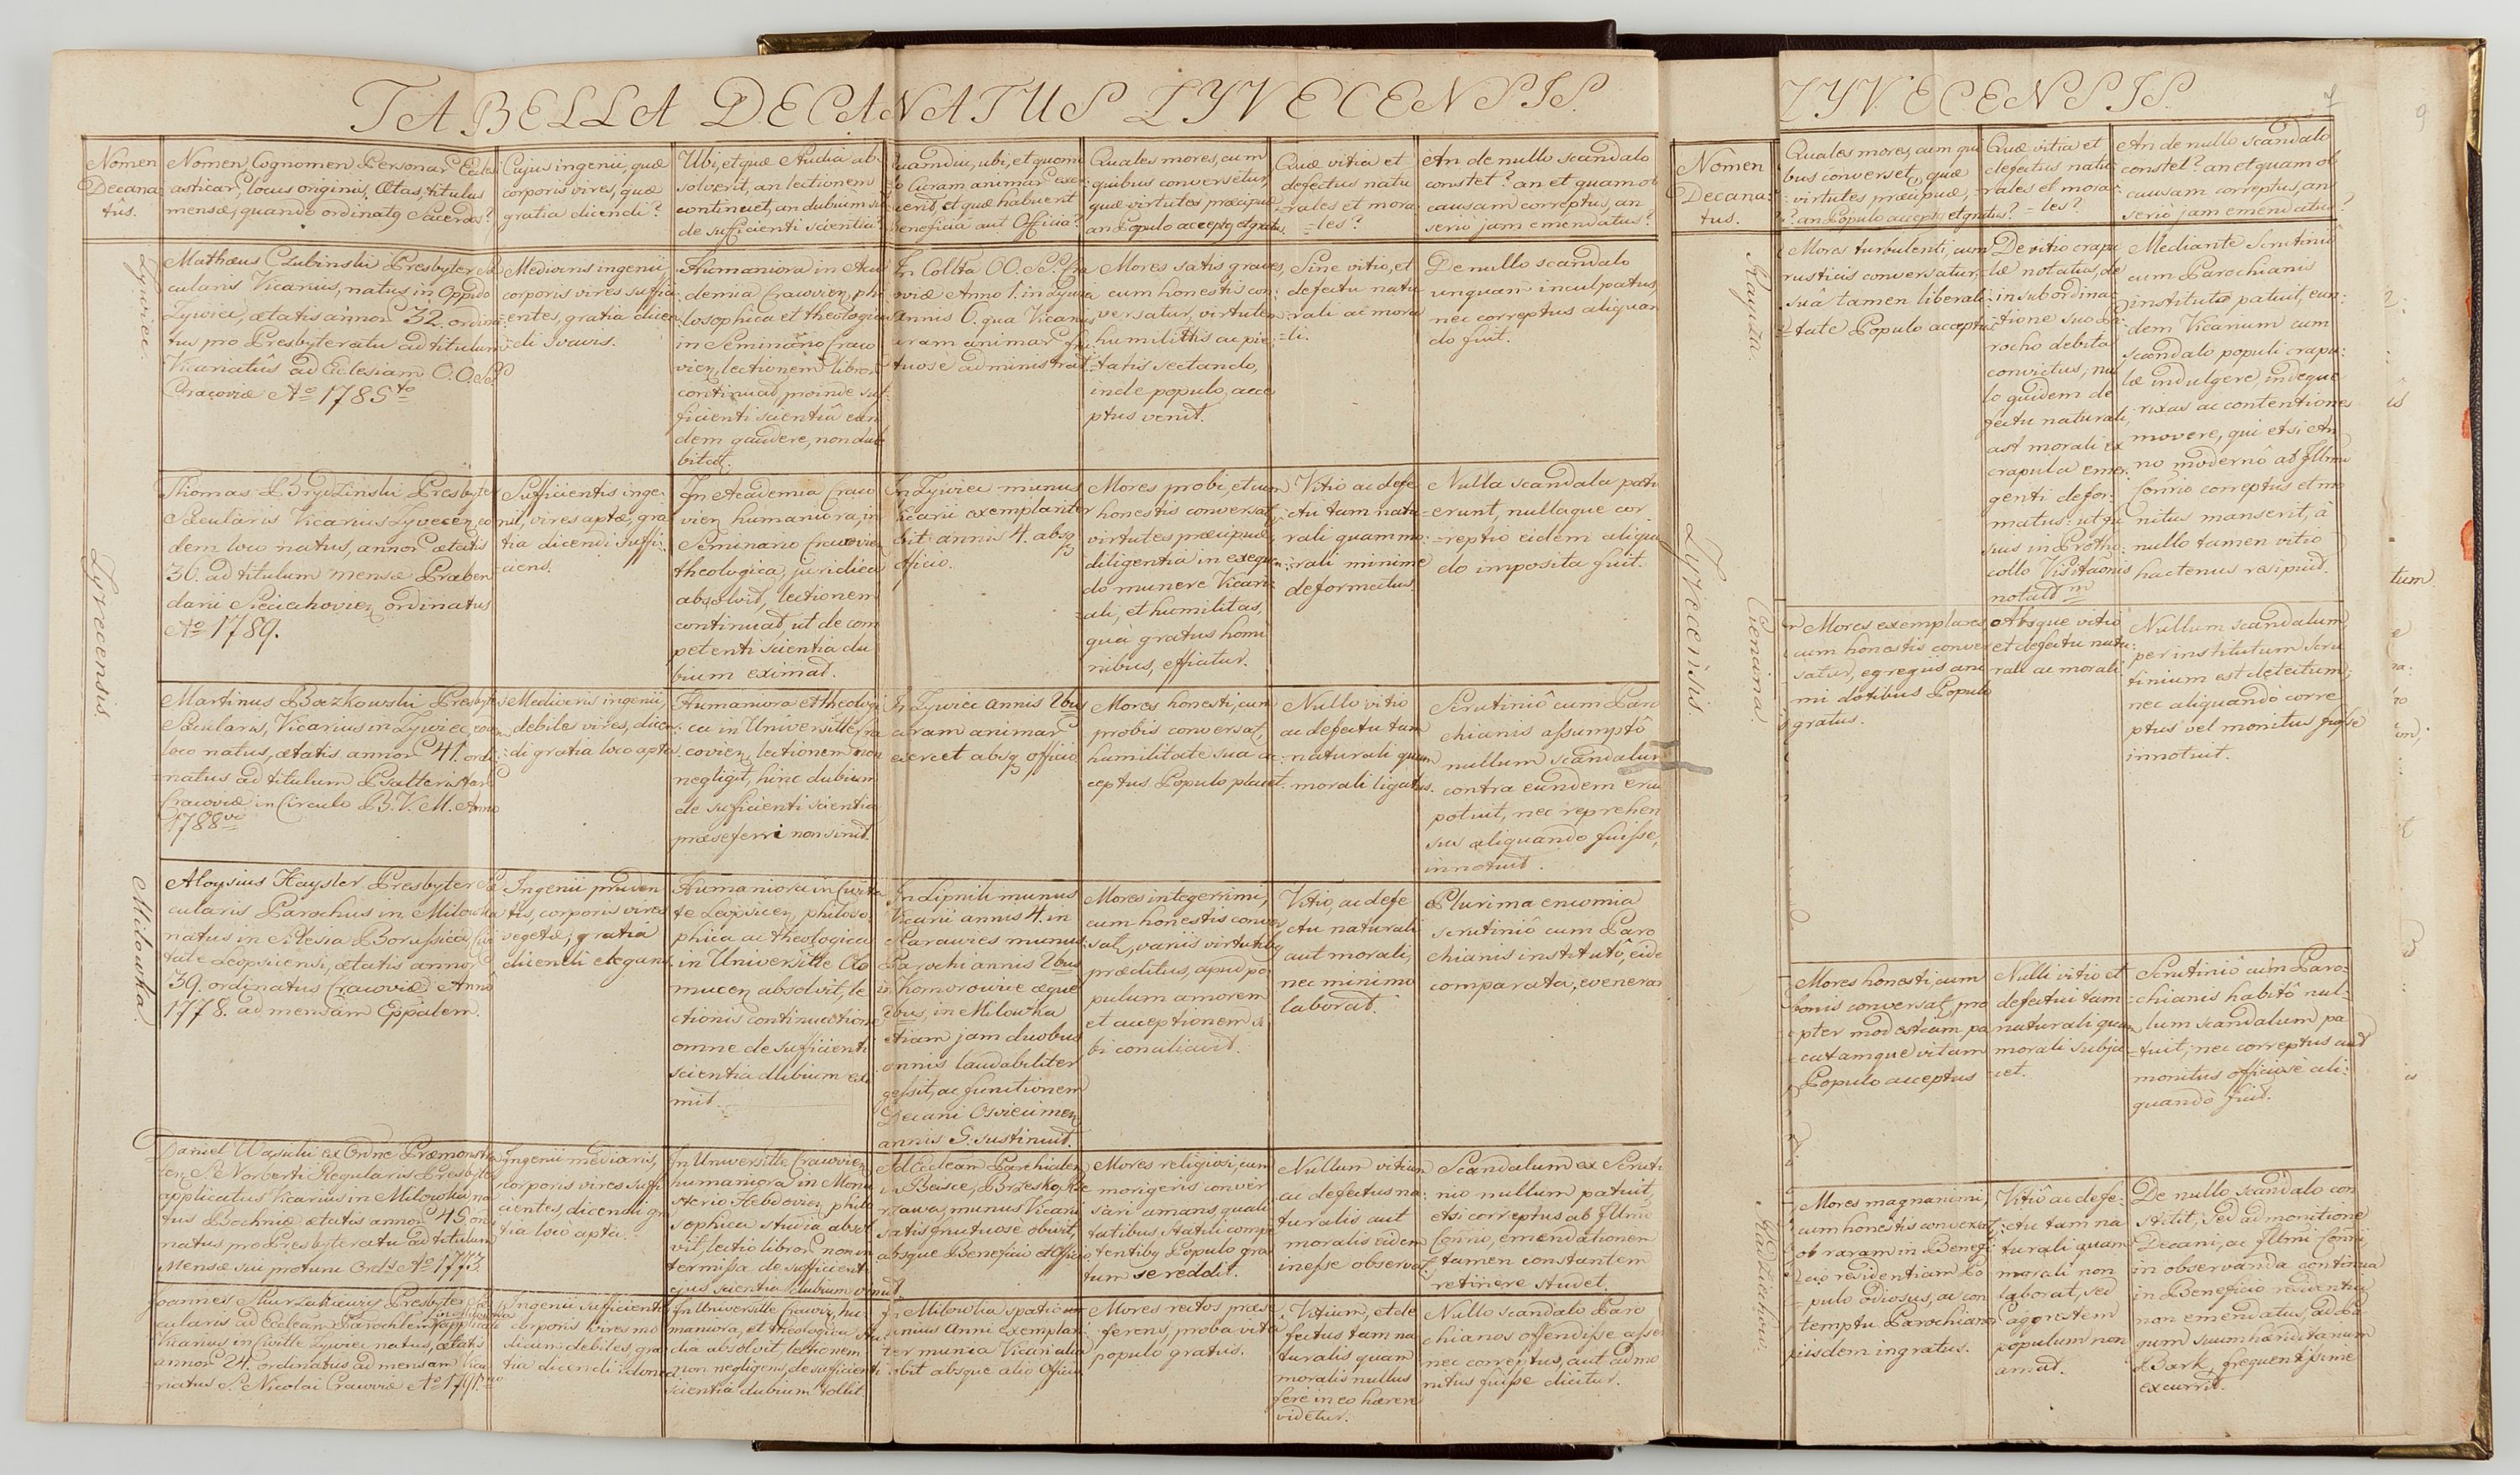 TABELLA DECANATUS ZYVECENSIS.
Nomen
Decana
tûs.
Nomen, Cognomen Personar Eccles
asticar, locus originis, Ætas, titulus
mensæ, quando ordinatq Sacerdos?
Cujus ingenii, quæ
corporis vires, quæ
gratia dicendi?
Ubi, et quæ studia ab
solverit, an lectionem
continuet, an dubium sit
de sufficienti scientia?
quamdiu, ubi, et quomo
do Curam animar exer
cerit, et quæ habuerit
beneficia aut Officia?
Quales mores, cum
quibus conversetur,
quæ virtutes præcipuæ
an Populo acceptq et gratus.
Quæ vitia et
defectus natu
=rales et mora
=les?
An de nullo scandalo
constet? an et quam ob
causam correptus, an
serio jam emendatus?
Zyviec
Zyvecensis.
Milowka.
Mathæus Czubinski Presbyter Sæ
cularis Vicarius, natus in Oppido
Zywiec, ætatis annor 32. ordina
tus pro Presbyteratu ad titulum
Vicariatûs ad Eclesiam O.O. SS.
Cracoviæ Ao 1785to
Mediocris ingenii,
corporis vires suffici
entes, gratia dicen
di suavis.
Humaniora in Aca
demia Cracovien, phi
losophica et theologica
in Seminario Craco
vien, lectionem libror
continuat, proinde suf
ficienti scientiâ eun
dem gaudere, non du
bitat.
In Collta OO. SS. Cra
coviæ Anno 1. in Zywiec
annis 6. qua Vicarius
curam animar fru
ctuosè administrat.
Mores satis graves,
cum honestis con
versatur, virtutem
humilittis ac pie
tatis sectando,
inde populo acce
ptus venit.
Sine vitio, et
defectu natu
rali ac mora
=li.
De nullo scandalo
unquam inculpatus,
nec correptus aliquan
do fuit.
Thomas Brydzinski Presbyter
Sæcularis Vicarius Zyvecen, eo
dem loco natus, annor ætatis
36. ad titulum mensæ Præben
darii Sieciechovien ordinatus
Ao 1789.
Sufficientis inge
nii, vires aptæ, gra
tia dicendi suffi
ciens.
In Academia Craco
vien humaniora, in
Seminario Cracovien
theologica, juridica
absolvit, lectionem
continuat, ut de com
petenti scientia du
bium eximat.
In Zywiec munus
Vicarii exemplariter
obit annis 4. absq
officio.
Mores probi, et cum
honestis conversat,
virtutes præcipuæ
diligentia in exequen
do munere Vicari
ali, et humilitas,
quâ gratus homi
nibus, efficitur.
Vitio ac defe
ctu tam natu
rali quam mo
rali minime
deformatus.
Nulla scandala patu
erunt, nullaque cor
reptio eidem aliqu
do imposita fuit.
Martinus Boczkowski Presbyt
Sæcularis, Vicarius in Zywiec, eodem
loco natus, ætatis annor 41. ordi
natus ad titulum Psalteristar
Cracoviæ in Circulo B.V.M. Anno
1788vo
Mediocris ingenii,
debiles vires, dicen
di gratia loco apta.
Humaniora et theologi
ca in Universitte Cra
covien, lectionem non
negligit, hinc dubium
de sufficienti scientia
præseferri non sinit.
In Zywiec annis 2bus
curam animar
exercet absq officio
Mores honesti, cum
probis conversat,
humilitate sua ac
ceptus Populo placet.
Nullo vitio
ac defectu tam
naturali quam
morali ligatus.
Scrutiniô cum Paro
chianis assumptô
nullum scandalum
contra eundem erui
potuit, nec reprehen
sus aliquando fuisse,
innotuit.
Aloysius Haysler Presbyter Sæ
cularis Parochus in Milowka
natus in Silesia Borussica Civi
tate Leopsicensi, ætatis annor
39. ordinatus Cracoviæ Annô
1778. ad mensam Eppalem.
Ingenii pruden
tis, corporis vires
vegetæ, gratiâ
dicendi elegans.
Humaniora in Civita
te Leopsicen, philoso
phica ac theologica
in Universitte Olo
mucen absolvit, le
ctionis continuatione
omne de sufficienti
scientia dubium exi
mit.
In Lipnik munus
Vicarii annis 4. in
munus
Parochi annis 2bus
in Komorowice æque
2bus, in Milowka
etiam jam duobus
annis laudabiliter
gessit, ac functionem
Decani Osviecimen
annis 5. sustinuit.
Mores integerrimi,
cum honestis conver
sat, variis virtutibq
præditus, apud po
pulum amorem
et acceptionem si
bi conciliavit.
Vitio, ac defe
ctu naturali
aut morali,
nec minimo
laborat.
Plurima encomia
scrutiniô cum Paro
chianis institutô, eide
comparata, evenerat
Daniel Wasulii ex Ordne Præmonstra
ten, S. Norberti Regularis Presbyter
applicatus Vicarius in Milowka, na
tus Bochniæ ætatis annor 45. ordi
natus pro Presbyteratu ad titulum
Mensæ sui protunc Ordis Ao 1773.
Ingenii mediocris,
corporis vires suffi
cientes, dicendi gra
tia loco apta.
In Universitte Cracovien
humaniora, in Mona
sterio Hebdovien philo
sophica studia absol
vit, lectio libror non in
termissa de sufficienti
ejus scientia dubium vincit.
Ad Eccleam Parchialem
munus Vicarii
satis fructuosè obivit,
absque Beneficio et Officio.
Mores religiosi, cum
morigeris conver
sari amans, quali
tatibus statui compe
tentibq Populo gra
tum se reddit.
Nullum vitium
ac defectus na
turalis aut
moralis eidem
inesse observat.
Scandalum ex Scruti
nio nullum patuit,
etsi correptus ab Illmo
Consrio, emendationem
tamen constantem
retinere studet.
Joannes Presbyter Sæ
cularis ad Ecclam Parochlem applicati
Vicarius in Civitte Zywiec natus, ætatis
annor 24. ordinatus ad mensam Vica
riatus S. Nicolai Cracoviæ Ao 1791mo
Ingenii sufficientis
corporis vires mo
dicum debiles, gra
tia dicendi idonea.
In Universitte Cracovien, hu
maniora, et theologica stu
dia absolvit, lectionem
non negligens, de sufficienti
scientia dubium tollit.
In Milowka spatio u
nius Anni exemplari
ter munia Vicarialia
obit absque alio Officio.
Mores rectos præse
ferens, proba vita
populo gratus.
Vitium, et de
fectus tam na
turalis quam
moralis nullus
fere in eo hærere
videtur.
Nullo scandalo Paro
chianos offendisse asse
nec correptus, aut admo
nitus fuisse dicitur.
ZYVECENSIS.
7
9
Nomen
Decana:
tus.
Quales mores, cum qui
bus converset, quæ
virtutes præcipuæ,
? an Populo acceptq et gratus?
Quæ vitia et
defectus natu
rales et mora
=les?
An de nullo scandalo
constet? an et quam ob
causam correptus, an
serio jam emendatus?
Raycza.
Zyvecensis.
Ciencina.
Radziechow.
Mores turbulenti, cum
rusticis conversatur,
suâ tamen liberali
tate Populo acceptus
De vitio crapu
læ notatus, de
insubordina
tione suo Pa
rocho debita
convictus, nul
lo quidem de
fectu naturali,
ast morali ex
crapula emer
genti defor
matus: ut fu
sius in Protho
collo Visitaonis
notatdm
Mediante Scrutiniô
cum Parochianis
institutô patuit, eun
dem Vicarium cum
scandalo populi crapu
læ indulgere indeque
rixas ac contentiones
movere, qui etsi An
no modernô ab Illmo
Consrio correptus et mo
nitus manserit, à
nullo tamen vitio
hactenus resipuit.
Mores exemplares
cum honestis conver
satur, egregiis ani
mi dotibus Populo
gratus.
Absque vitio
et defectu natu
rali ac morali
Nullum scandalum,
per institutum scru
tinium est detectum,
nec aliquandò corre
ptus vel monitus fuisse
innotuit.
Mores honesti, cum
bonis conversat, pro
pter modestiam pa
catamque vitam
Populo acceptus
Nulli vitio et
defectui tam
naturali quam
morali subja
cet.
Scrutiniô cum Paro
chianis habitô nul
lum scandalum pa
tuit, nec correptus aut
monitus officiosè ali
quandò fuit.
Mores magnanimi,
cum honestis conversat,
ob raram in Benefi
cio residentiam Po
pulo odiosus, ac con
temptu Parochianor
eisdem ingratus.
Vitiô ac defe
ctu tam na
turali quam
morali non
laborat, sed
agrestem
populum non
amat.
De nullo scandalo con
stitit, sed admonitione
Decani, ac Illmi Consrii,
in observanda continua
in Beneficio residentia
non emendatus, ad Pa
gum suum hæreditarium
Bark frequentissime
excurrit.
tum.